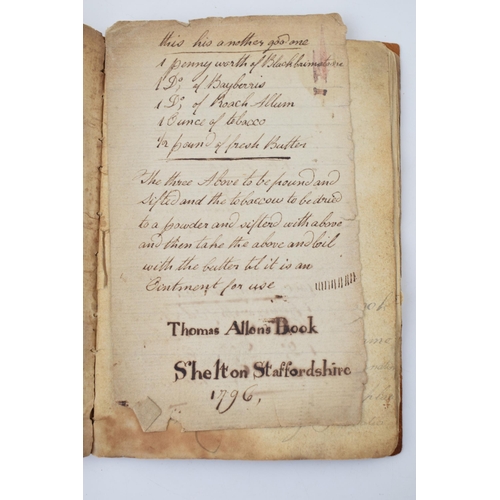 this his another good one
1 penny worth of Blackbrimstone
1 Do, of Bayberris
1 Do, of Roach Allum
1 Ounce of tobacco
1/2 pound of fresh Butter
The three Above to be pound and
sifted and the tobaccow to be dried
to a powder and sifterd with above
and then take the above and boil
with the butter til it is an
Ointment for use
Thomas Allens Book
Shelton Staffordshire
1796,